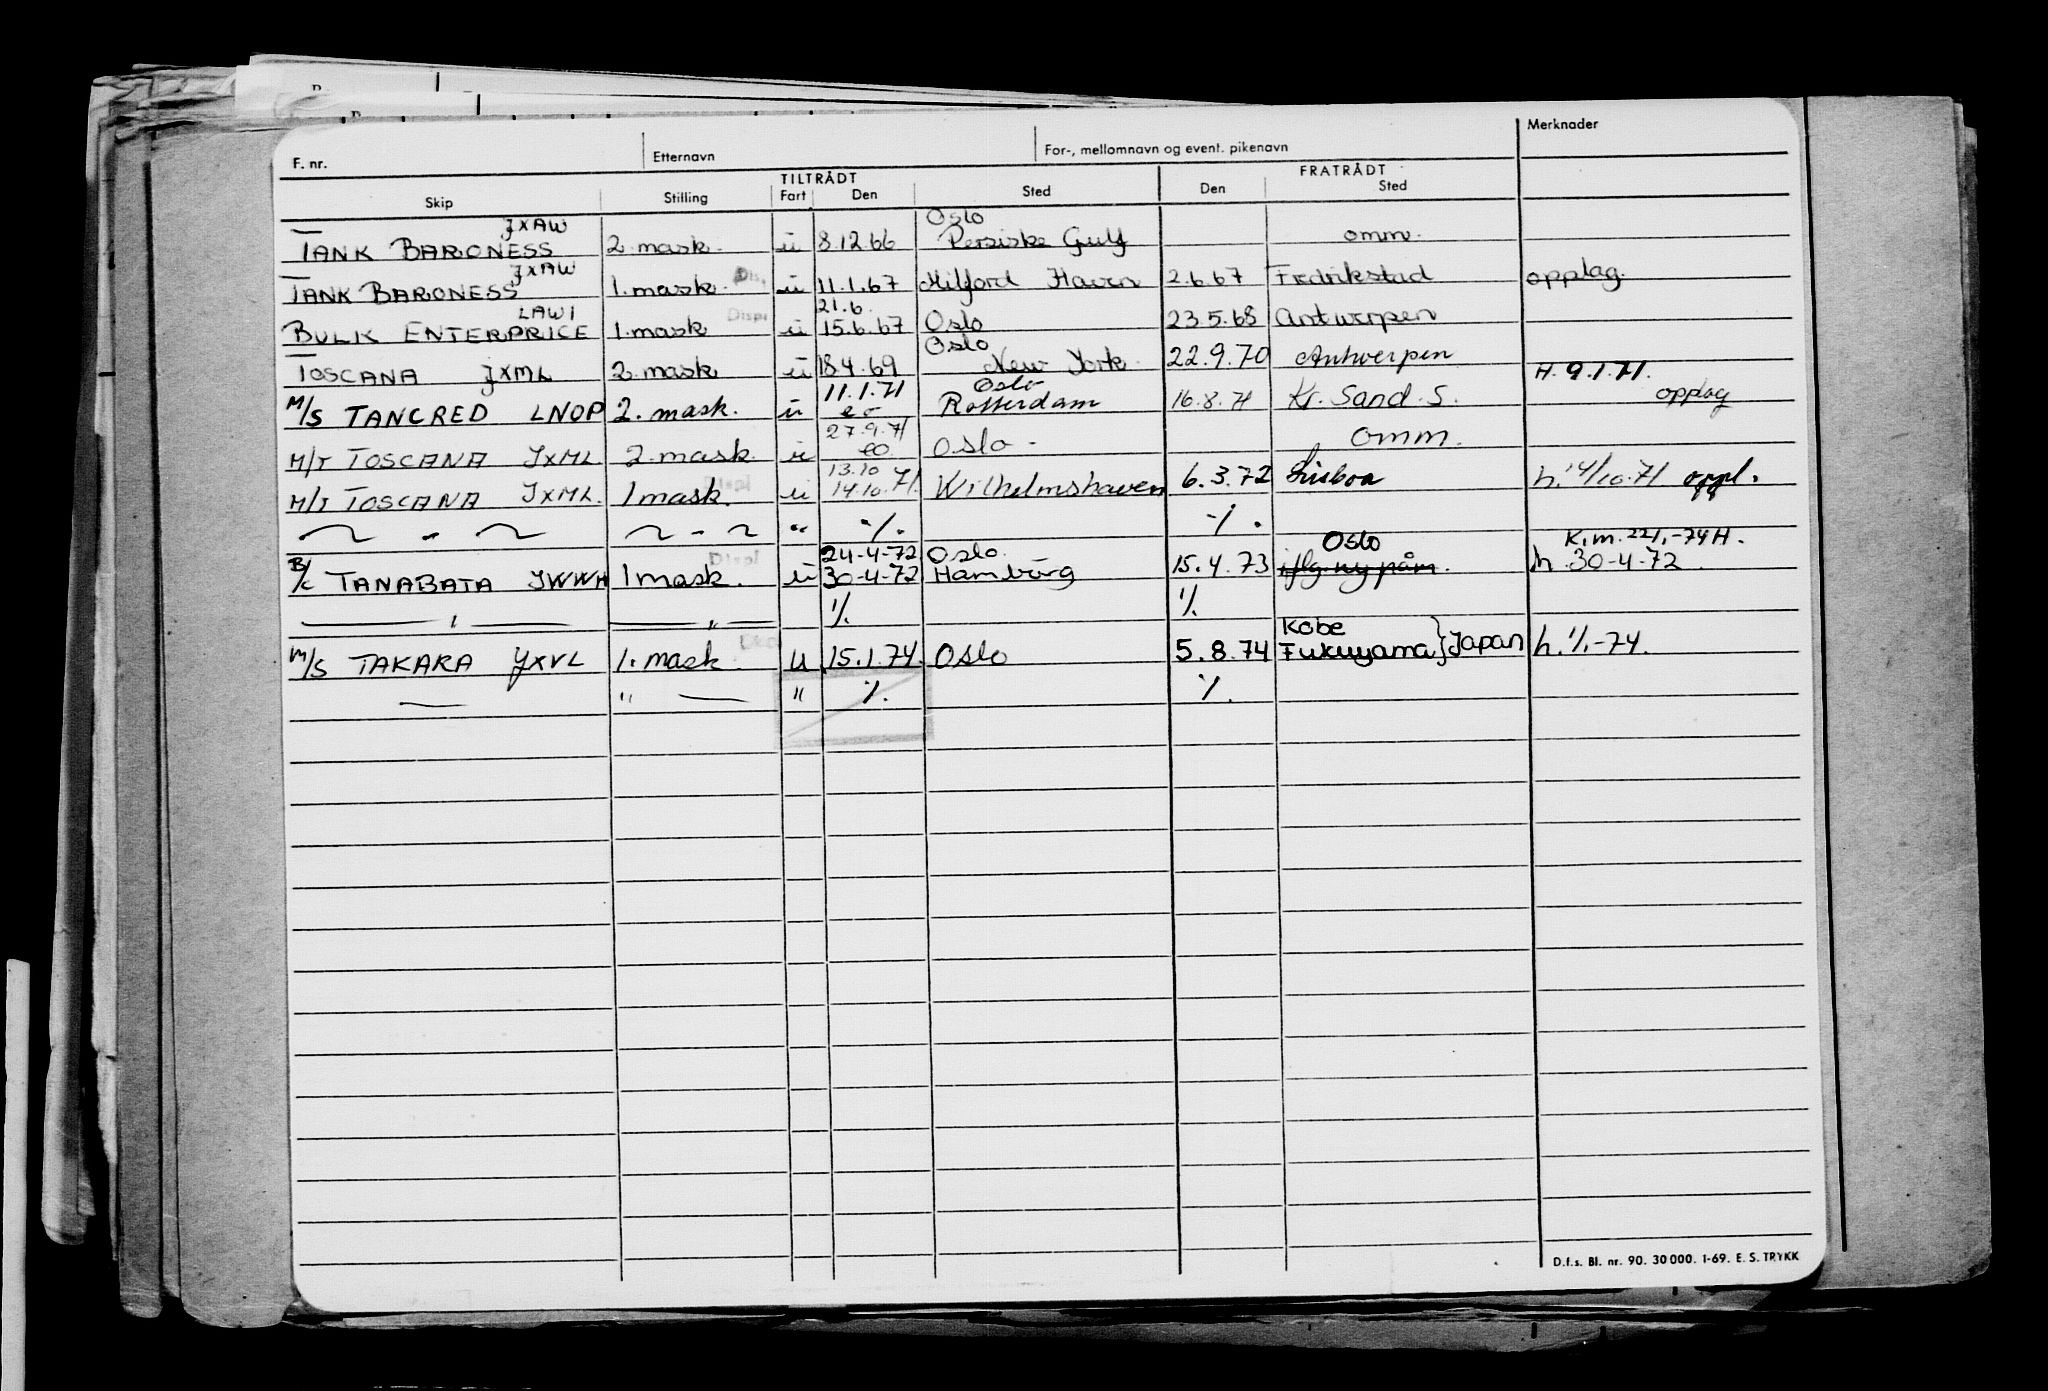 F. nr. Etternavn For-, mellomnavn og event. pikenavn Merknader
TILTRÅDT FRATRÅDT
Skip Stilling Fart Den Sted Den Sted
JXAW Oslo
TANK BARONESS 2. mask. u 8.12.66 Persiske Gulf omm.
JXAW
TANK BARONESS 1. mask. Disp. u 11.1.67 Milford Haven 2.6.67 Fredrikstad opplag.
LAWI 21.6.
BULK ENTERPRICE 1. mask Displ u 15.6.67 Oslo 23.5.68 Antwerpen
Oslo
TOSCANA JXML 2. mask u 18.4.69 New York. 22.9.70 Antwerpen H. 9.1.71.
11.1.71 Oslo
M/S TANCRED LNOP 2. mask. u eo Rotterdam 16.8.71 Kr. Sand. S. opplag
27.9.71
M/T TOSCANA JXML. 2. mask. u eo Oslo - omm.
13.10
M/T TOSCANA JXML. 1 mask. Displ u 14.10.71. Wilhelmshaven 6.3.72 Lisboa h. 14/10.71 oppl.
~ " ~ ~ - ~ " ·/. ·/.
24-4-72 Oslo. Oslo K.m. 22/1.-74 H.
B/C TANABATA JWWH 1 mask. Displ u 30-4-72 Hamburg 15.4.73 iflg. ny påm. h. 30-4-72.
— " — — " — ·/. ·/.
Kobe
M/S TAKARA JXVL 1. mask. u 15.1.74. Oslo 5.8.74 Fukuyama } Japan h. 1/1.-74.
— " — " ·/. ·/.
D.f.s. Bl. nr. 90. 30 000. 1-69. E. S. TRYKK